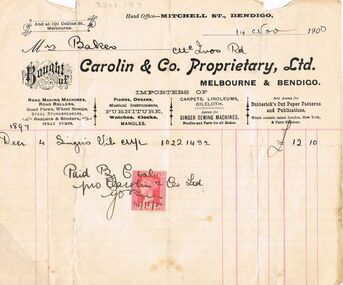 And at 191 Collins St., Melbourne.
Head Office—MITCHELL ST., BENDIGO,
14 Nov 1900
Mrs Bakes
McIvor Rd
Bought OF
Carolin & Co. Proprietary, Ltd.
MELBOURNE & BENDIGO.
IMPORTERS OF
ROAD MAKING MACHINES,
ROAD ROLLERS,
Road Plows, Wheel Scoops,
STEEL STUMPBREAKERS,
Reapers & Binders,
SPRAY PUMPS.
PIANOS, ORGANS,
Musical Instruments,
FURNITURE,
Watches, Clocks,
MANGLES.
CARPETS, LINOLEUMS,
OILCLOTH.
SINGER SEWING MACHINES.
Needles and Parts for all Makes.
Sole Agents for
Butterick's Cut Paper Patterns
and Publications,
Which contain latest London, New York,
& Paris Fashions.
1897
Decr 4 Singer 10221432 £ 12 10
Paid
pro Carolin & Co Ltd